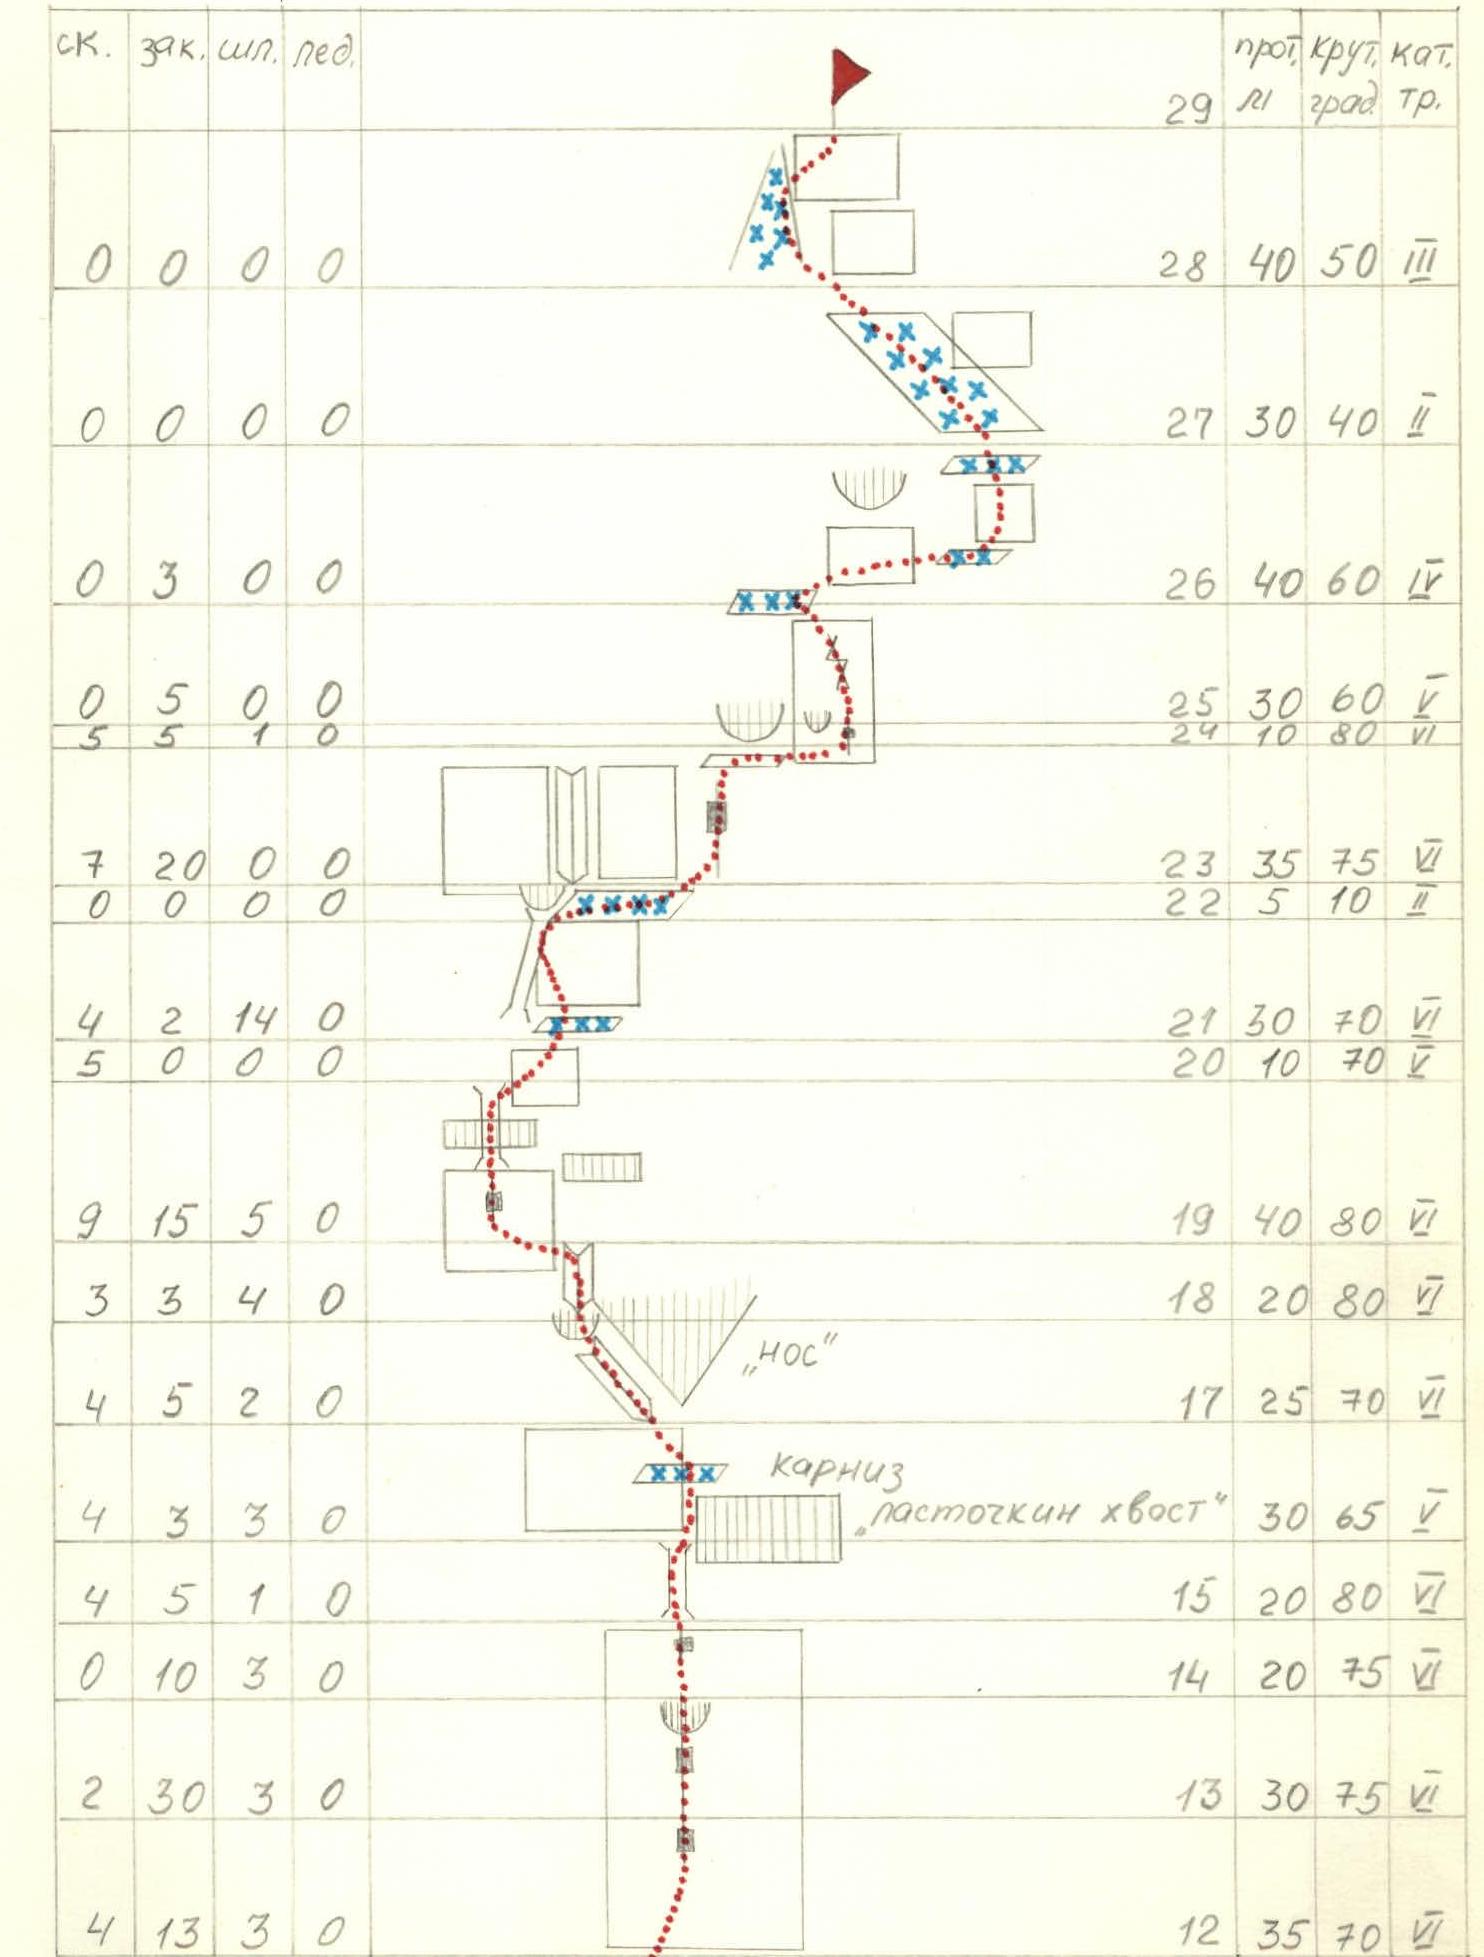 ск. зак. шл. лед. прот. крут. кат.
29 м град. тр.
0 0 0 0 28 40 50 III
0 0 0 0 27 30 40 II
0 3 0 0 26 40 60 IV
0 5 0 0 25 30 60 V
5 5 1 0 24 10 80 VI
7 20 0 0 23 35 75 VI
0 0 0 0 22 5 10 II
4 2 14 0 21 30 70 VI
5 0 0 0 20 10 70 V
9 15 5 0 19 40 80 VI
3 3 4 0 18 20 80 VI
„нос“
4 5 2 0 17 25 70 VI
карниз
4 3 3 0 „ласточкин хвост“ 30 65 V
4 5 1 0 15 20 80 VI
0 10 3 0 14 20 75 VI
2 30 3 0 13 30 75 VI
4 13 3 0 12 35 70 VI